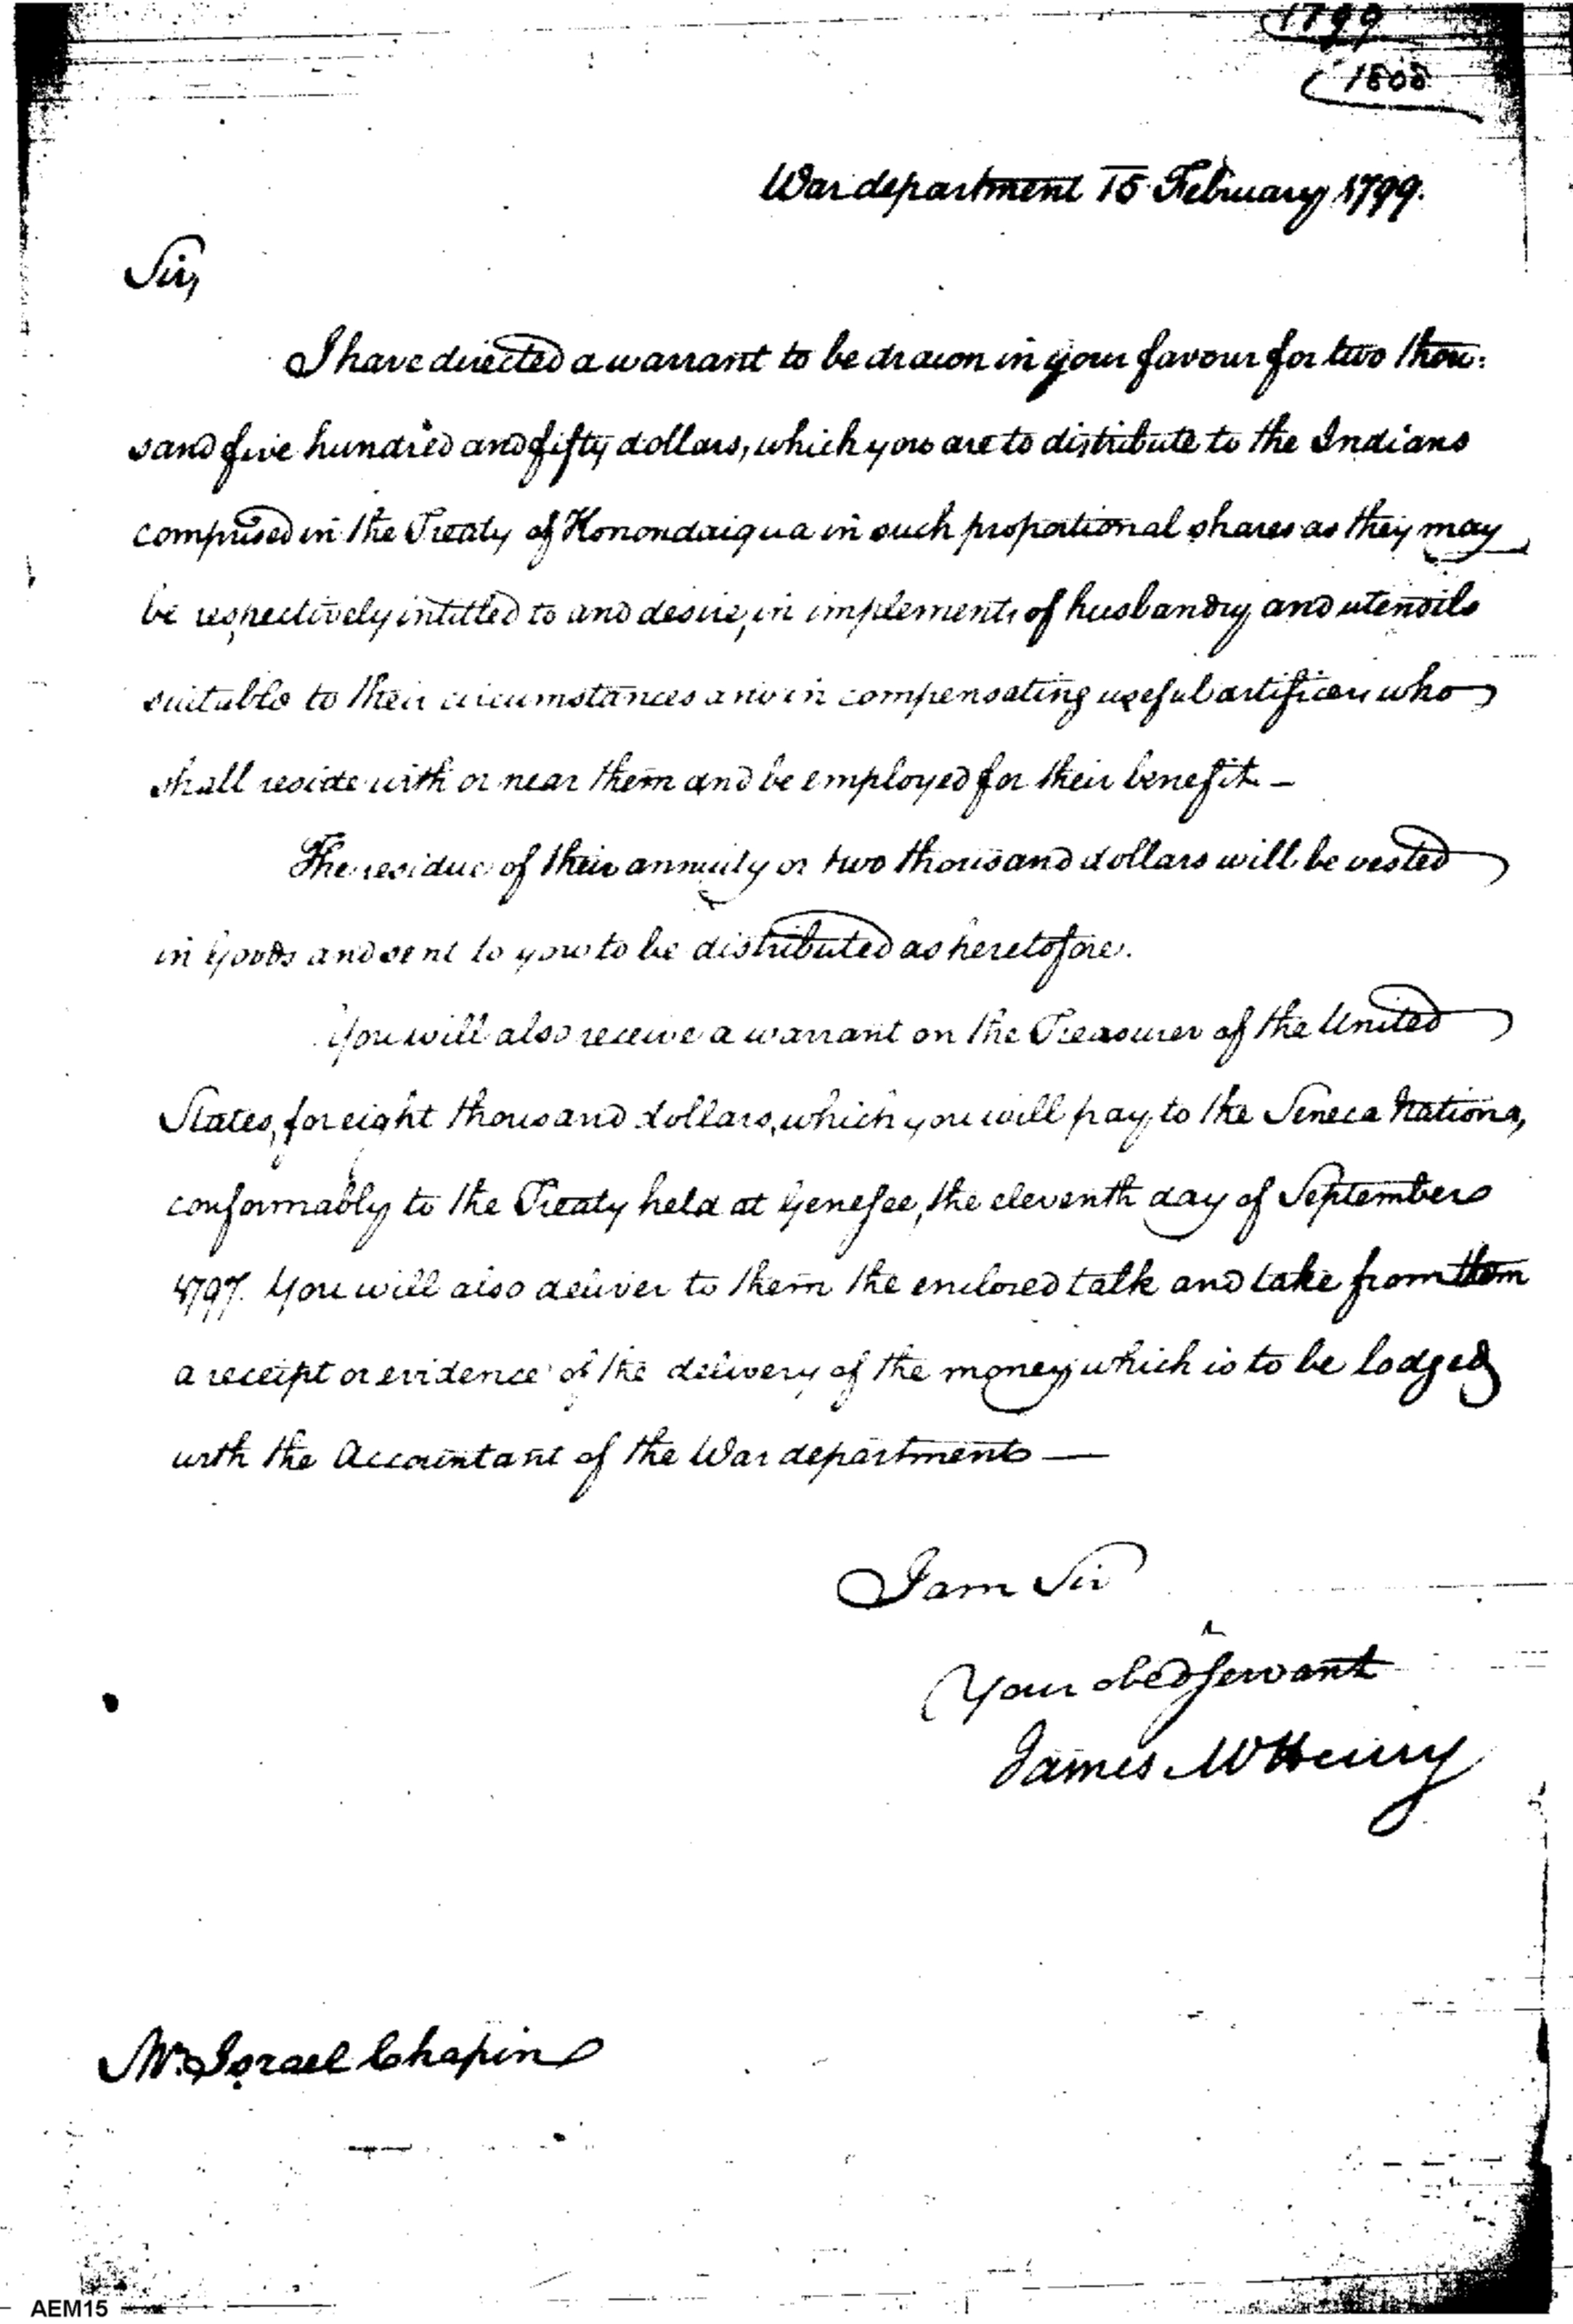 1799
1808
War department 15 February 1799.
Sir,
I have directed a warrant to be drawn in your favour for two thou:
sand five hundred and fifty dollars, which you are to distribute to the Indians
comprised in the Treaty of Konondaiqua in such proportional shares as they may
be respectively intitled to and desire, in implements of husbandry and utensils
suitable to their circumstances and in compensating useful artificers who
shall reside with or near them and be employed for their benefit. —
The residue of their annuity or two thousand dollars will be vested
in Goods and sent to you to be distributed as heretofore.
You will also receive a warrant on the Treasurer of the United
States, for eight thousand dollars, which you will pay to the Seneca Nations,
conformably to the Treaty held at Genesee, the eleventh day of September
1797. You will also deliver to them the enclosed talk and take from them
a receipt or evidence of the delivery of the money which is to be lodged
with the Accountant of the War department —
I am Sir
Your obed servant
James McHenry
Mr. Israel Chapin
AEM15